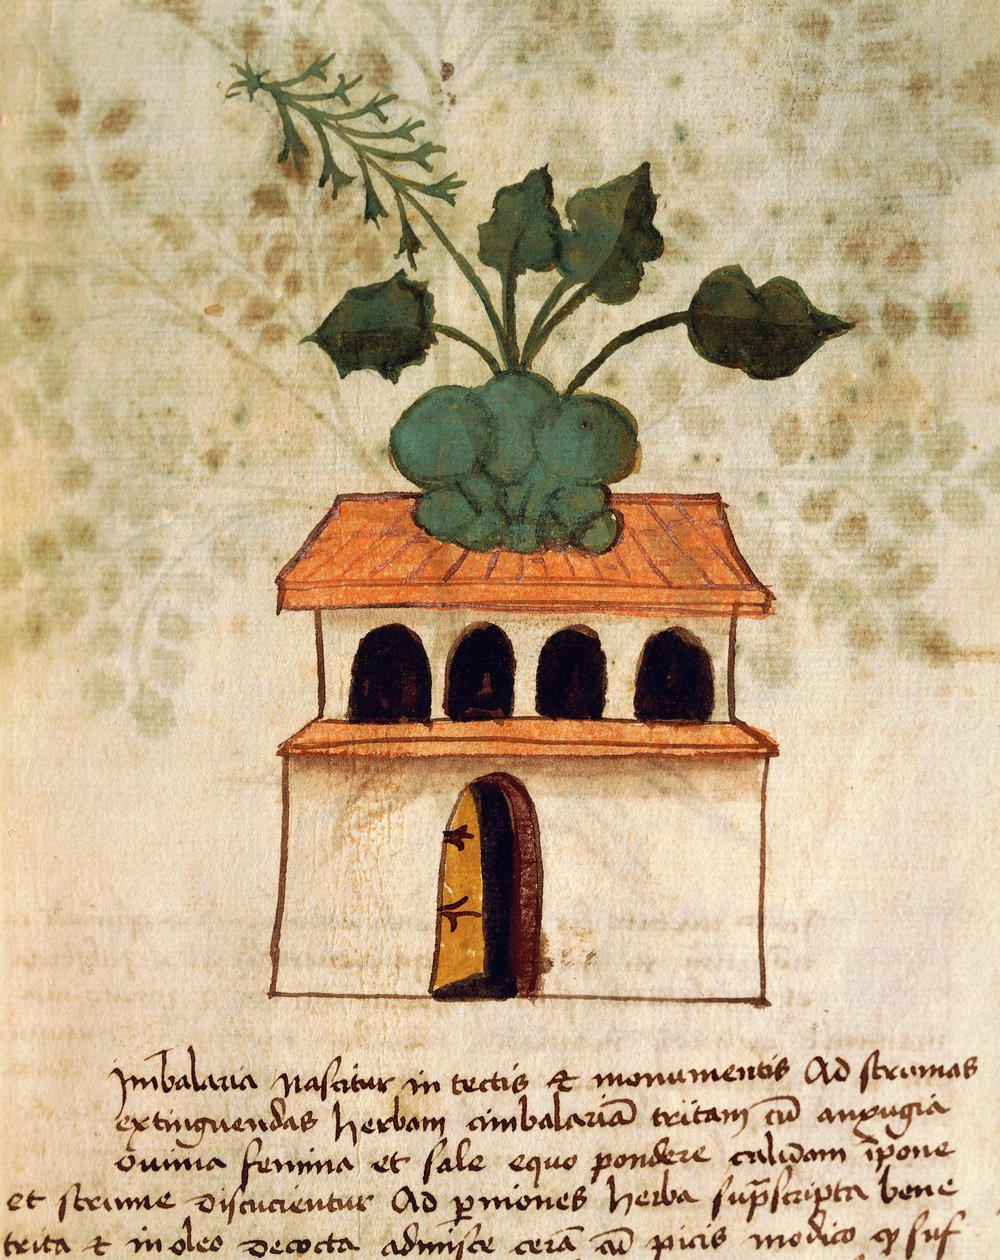 Jmbalaria nascitur in tectis et monumentis Ad strumas
extinguendas herbam cimbalariā tritam cū anxugia
ovina femina et sale equo pondere calidam īpone
et strume discucientur Ad p̱niones herba sup̄scripta bene
trita et in oleo decocta admisce cerā cū picis modico